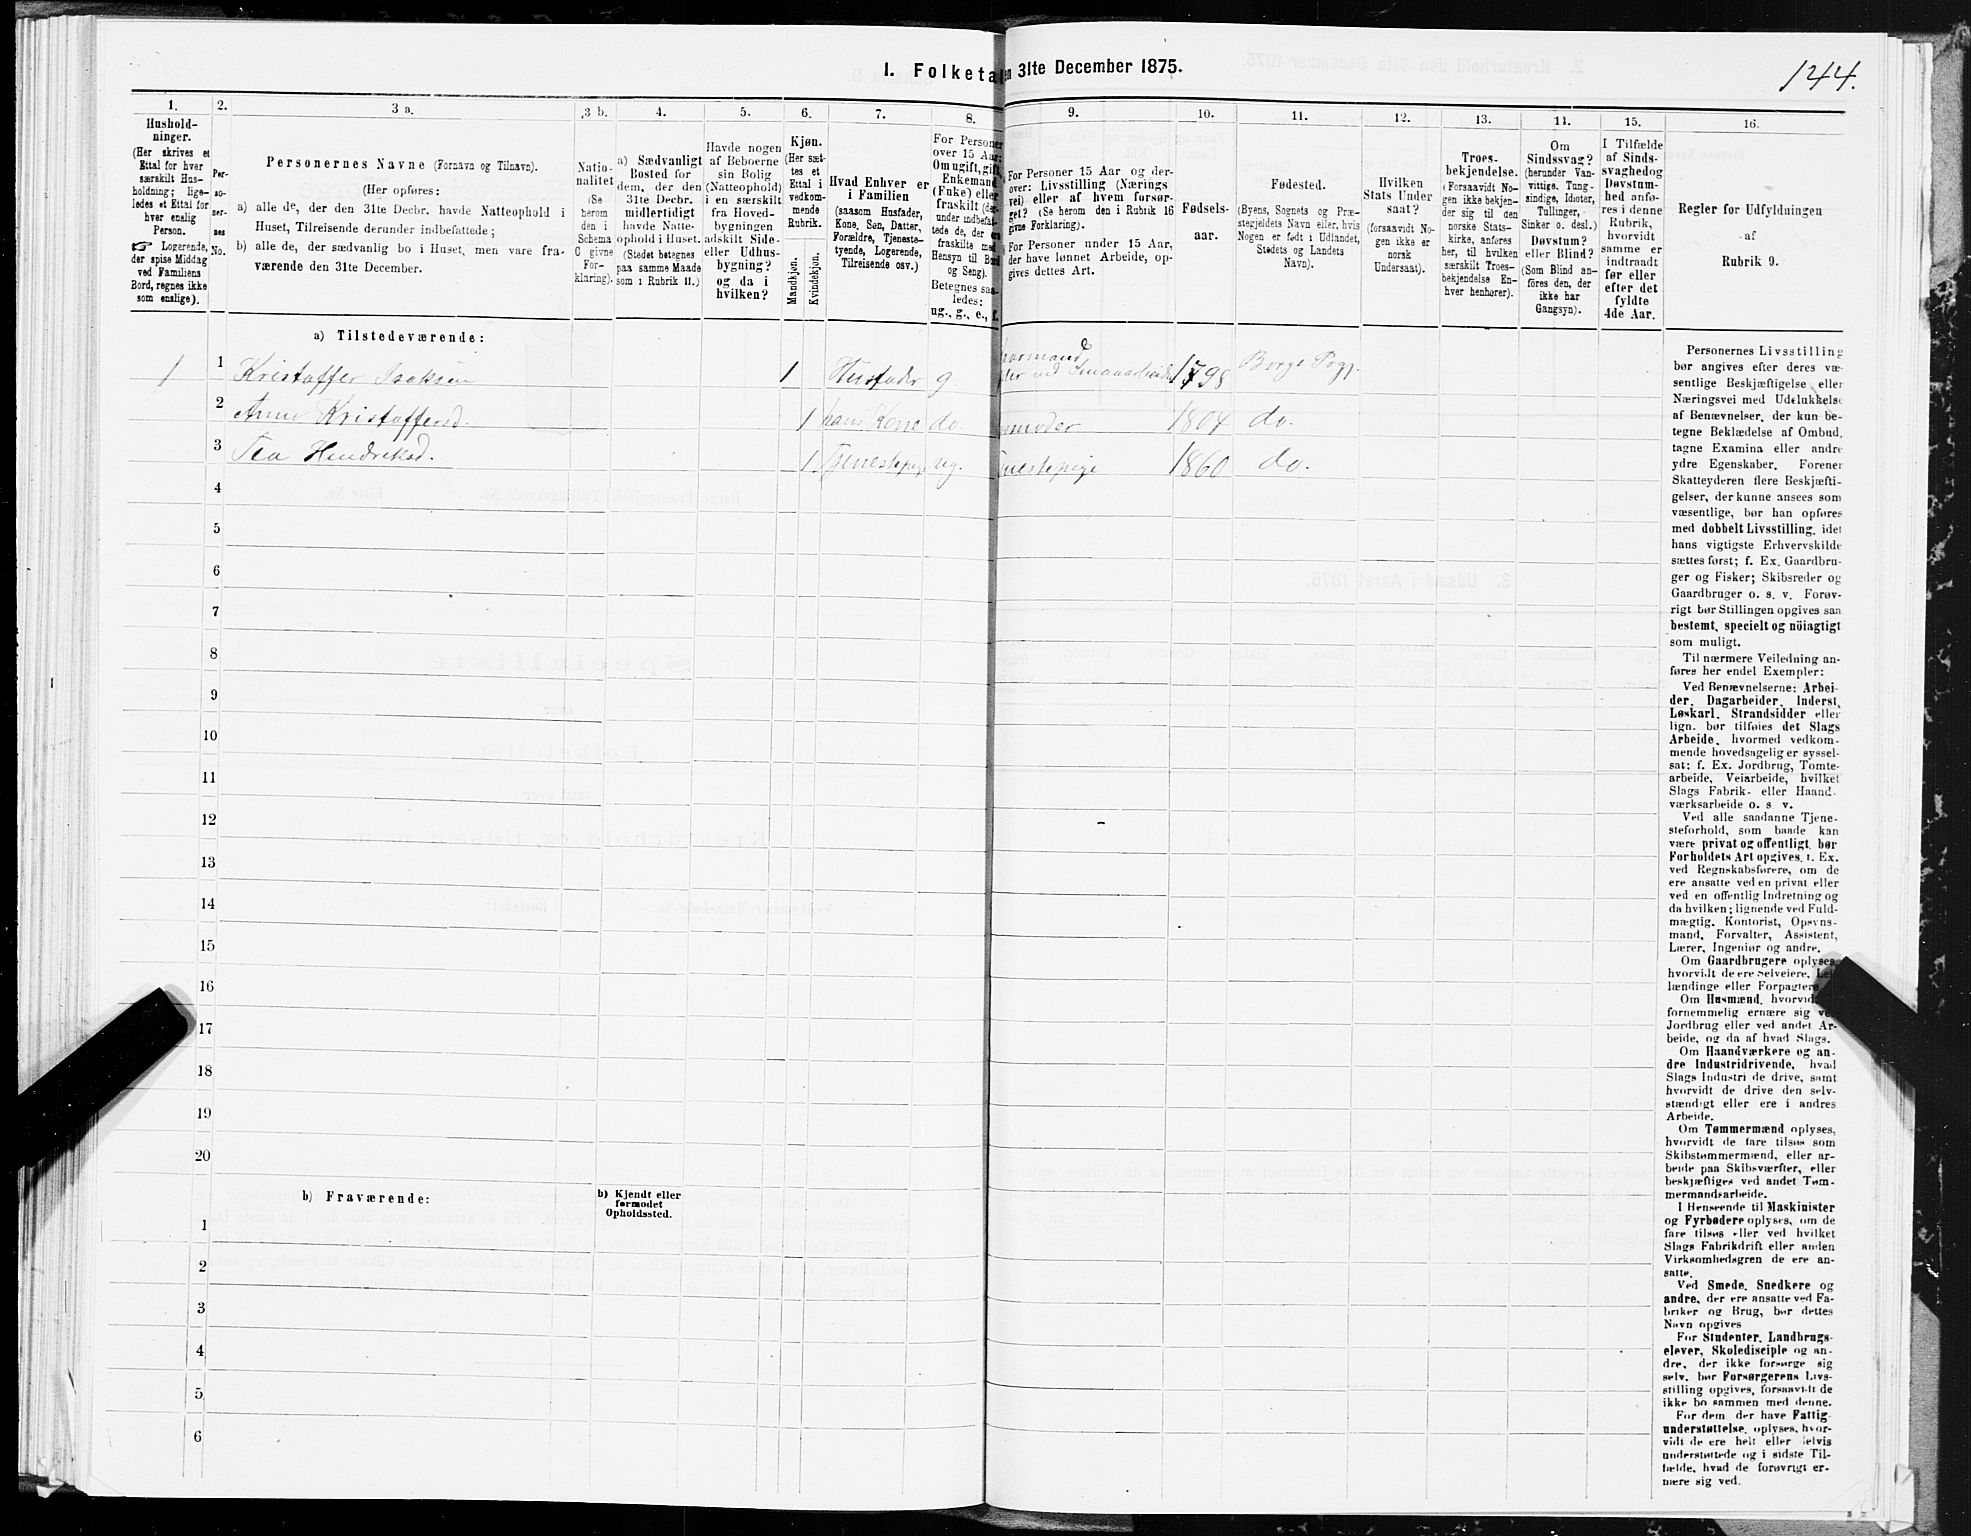 144.
I. Folketa n 31te December 1875.
1. 2. 3 a. 3 b. 4. 5. 6. 7. 8. 9. 10. 11. 12. 13. 14. 15. 16.
Hushold-
ninger.
(Her skrives et
Ettal for hver
særskilt Hus-
holdning; lige-
ledes et Ettal for
hver enslig
Person.
☞ Logerende,
der spise Middag
ved Familiens
Bord, regnes ikke
som enslige).
Per-
so-
ner-
nes
No.
Personernes Navne (Fornavn og Tilnavn).
(Her opføres:
a) alle de, der den 31te Decbr. havde Natteophold i
Huset, Tilreisende derunder indbefattede;
b) alle de, der sædvanlig bo i Huset, men vare fra-
værende den 31te December.
Natio-
nalitet
(Se
herom
den i
Schema
C givne
For-
klaring).
a) Sædvanligt
Bosted for
dem, der den
31te Decbr.
midlertidigt
havde Natte-
ophold i Huset.
(Stedet betegnes
paa samme Maade
som i Rubrik 11.)
Havde nogen
af Beboerne
sin Bolig
(Natteophold)
i en særskilt
fra Hoved-
bygningen
adskilt Side-
eller Udhus-
bygning?
og da i
hvilken?
Kjøn.
(Her sæt-
tes et
Ettal i
vedkom-
mende
Rubrik.
Mandkjøn.
Kvindekjøn.
Hvad Enhver er
i Familien
(saasom Husfader,
Kone, Søn, Datter,
Forældre, Tjeneste-
tyende, Logerende,
Tilreisende osv.)
For Personer
over 15 Aar:
Om ugift, gift,
Enkemand
(Enke) eller
fraskilt (der-
under indbefat-
tede de, der ere
fraskilte med
Hensyn til Bord
og Seng).
Betegnes saa-
ledes:
ug., g., e., f.
For Personer 15 Aar og der-
over: Livsstilling (Nærings
vei) eller af hvem forsør-
get? (Se herom den i Rubrik 16
givne Forklaring).
For Personer under 15 Aar,
der have lønnet Arbeide, op-
gives dettes Art.
Fødsels-
aar.
Fødested.
(Byens, Sognets og Præ-
stegjeldets Navn eller, hvis
Nogen er født i Udlandet,
Stedets og Landets
Navn).
Hvilken
Stats Under
saat?
(forsaavidt No-
gen ikke er
norsk
Undersaat).
Troes-
bekjendelse.
(Forsaavidt No-
gen ikke bekjen-
der sig til den
norske Stats-
kirke, anføres
her, til hvilken
særskilt Troes-
bekjendelse En-
hver henhører).
Om
Sindssvag?
(herunder Van-
vittige, Tung-
sindige, Idioter,
Tullinger,
Sinker o. desl.)
Døvstum?
eller Blind?
(Som Blind an-
føres den, der
ikke har
Gangsyn).
I Tilfælde
af Sinds-
svaghed og
Døvstum-
hed anfø-
res i denne
Rubrik,
hvorvidt
samme er
indtraadt
før eller
efter det
fyldte
4de Aar.
Regler for Udfyldningen
af
Rubrik 9.
a) Tilstedeværende:
1 1 Kristoffer Isaksen 1 Husfader g. 1798 Borge Pgj.
2 Anne Kristoffersd. 1 hans Kone do. 1804 do.
3 Tea Hendriksd. 1 Tjenestepige ug. 1860 do.
4
5
6
7
8
9
10
11
12
13
14
15
16
17
18
19
20
b) Fraværende:
b) Kjendt eller
formodet
Opholdssted.
1
2
3
4
5
6
Personernes Livsstilling
bør angives efter deres væ-
sentlige Beskjæftigelse eller
Næringsvei med Udelukkelse
af Benævnelser, der kun be-
tegne Beklædelse af Ombud,
tagne Examina eller andre
ydre Egenskaber. Forener
Skatteyderen flere Beskjæfti-
gelser, der kunne ansees som
væsentlige, bør han opføres
med dobbelt Livsstilling, idet
hans vigtigste Erhvervskilde
sættes først; f. Ex. Gaardbru-
ger og Fisker; Skibsreder og
Gaardbruger o. s. v. Forøv-
rigt bør Stillingen opgives saa
bestemt, specielt og nöiagtigt
som muligt.
Til nærmere Veiledning an-
føres her endel Exempler:
Ved Benævnelserne: Arbei-
der, Dagarbeider, Inderst,
Løskarl, Strandsidder eller
lign. bør tilføies det Slags
Arbeide, hvormed vedkom-
mende hovedsagelig er syssel-
sat; f. Ex. Jordbrug, Tomte-
arbeide, Veiarbeide, hvilket
Slags Fabrik- eller Haand-
værksarbeide o. s. v.
Ved alle saadanne Tjene-
steforhold, som baade kan
være privat og offentligt, bør
Forholdets Art opgives, f. Ex.
ved Regnskabsførere, om de
ere ansatte ved en privat eller
ved en offentlig Indretning og
da hvilken; lignende ved Fuld-
mægtig, Kontorist, Opsyns-
mand, Forvalter, Assistent,
Lærer, Ingeniør og andre.
Om Gaardbrugere oplyses,
hvorvidt de ere selveiere, Lei-
lændinge eller Forpagtere.
Om Husmænd, hvorvidt
fornemmelig ernære sig ved
Jordbrug eller ved andet Ar-
beide, og da af hvad Slags.
Om Haandværkere og an-
dre Industridrivende, hvad
Slags Industri de drive, samt
hvorvidt de drive den selv-
stændigt eller ere i andres
Arbeide.
Om Tømmermænd oplyses,
hvorvidt de fare tilsøs som
Skibstømmermænd, eller ar-
beide paa Skibsværfter, eller
beskjæftiges ved andet Tøm-
mermandsarbeide.
I Henseende til Maskinister
og Fyrbødere oplyses, om de
fare tilsøs eller ved hvilket
Slags Fabrikdrift eller anden
Virksomhedsgren de ere an-
satte.
Ved Smede, Snedkere og
andre, der ere ansatte ved Fa-
briker og Brug, bør dettes
Navn opgives
For Studenter, Landbrugs-
elever, Skoledisciple og an-
dre, der ikke forsørge sig
selv, bør Forsørgerens Livs-
stilling opgives, forsaavidt de
ikke bo sammen med denne.
For dem der have Fattig-
understøttelse, oplyses, hvor-
vidt de ere helt eller delvis
understøttede og i sidste Til-
fælde, hvad de forøvrigt er-
nære sig ved.